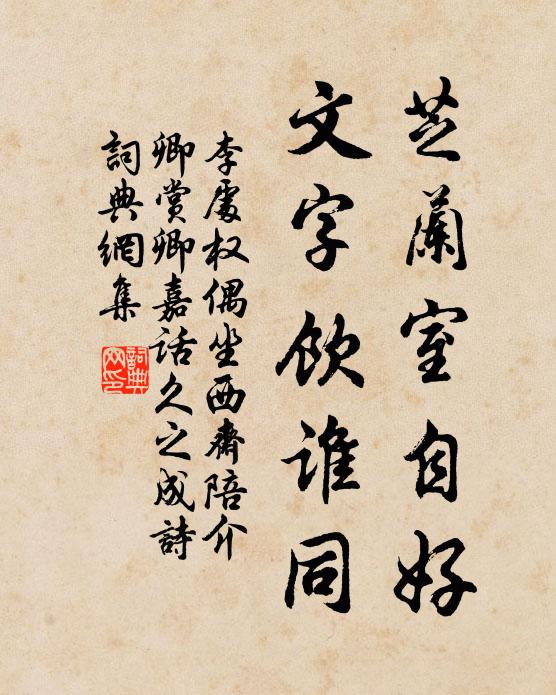 芝蘭室自好
文字飲谁同
李處权偶坐西齋陪介
卿赏卿嘉话久之成詩
詞典網集
詞典
网印